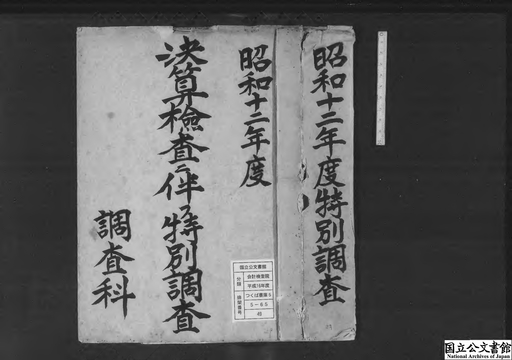 昭和十二年度特別調査
昭和十二年度
決算檢査ニ伴フ特別調査
調査科
国立公文書館
分類
会計検査院
平成15年度
つくば書庫5
5-65
45
国立公文書館
National Archives of Japan